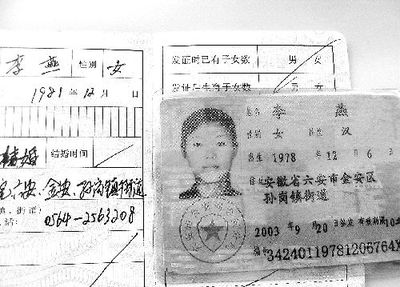 李燕 性别 女
1981年12月 日
结婚 结婚时间
六安 金安 孙岗镇街道
0564-2563208
发证时已有子女数 男 女
发证后生育子女数 男
姓名 李 燕
性别 女 民族 汉
出生 1978 12 6
安徽省六安市金安区
孙岗镇街道
2003 年 9 月 20 日签发 有效期限 10
编号 34240119781206764X